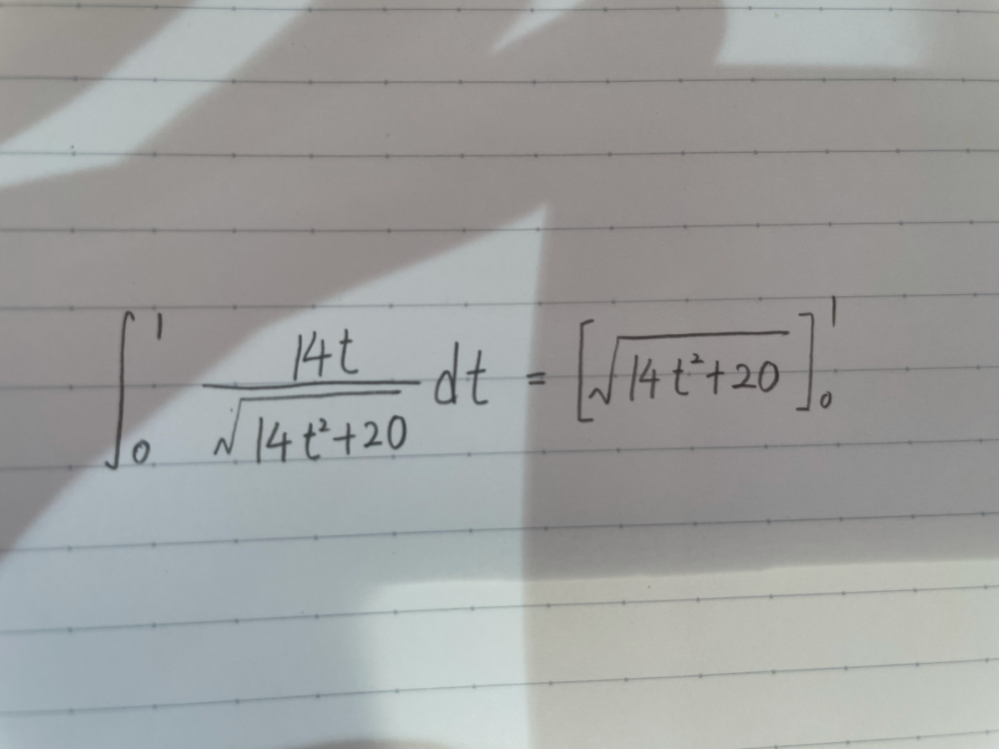 ∫₀¹ 14t/√(14t²+20) dt = [√(14t²+20)]₀¹